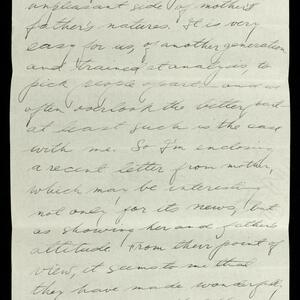 unpleasant side of mother &
father's natures. It is very
easy for us, of another generation
and trained at analysis, to
pick people apart and
often overlook the better part
at least such is the case
with me. So I'm enclosing
a recent letter from mother,
which may be interesting
not only for its news, but
as showing her and father's
attitude. From their point of
view, it seems to me that
they have made wonderful